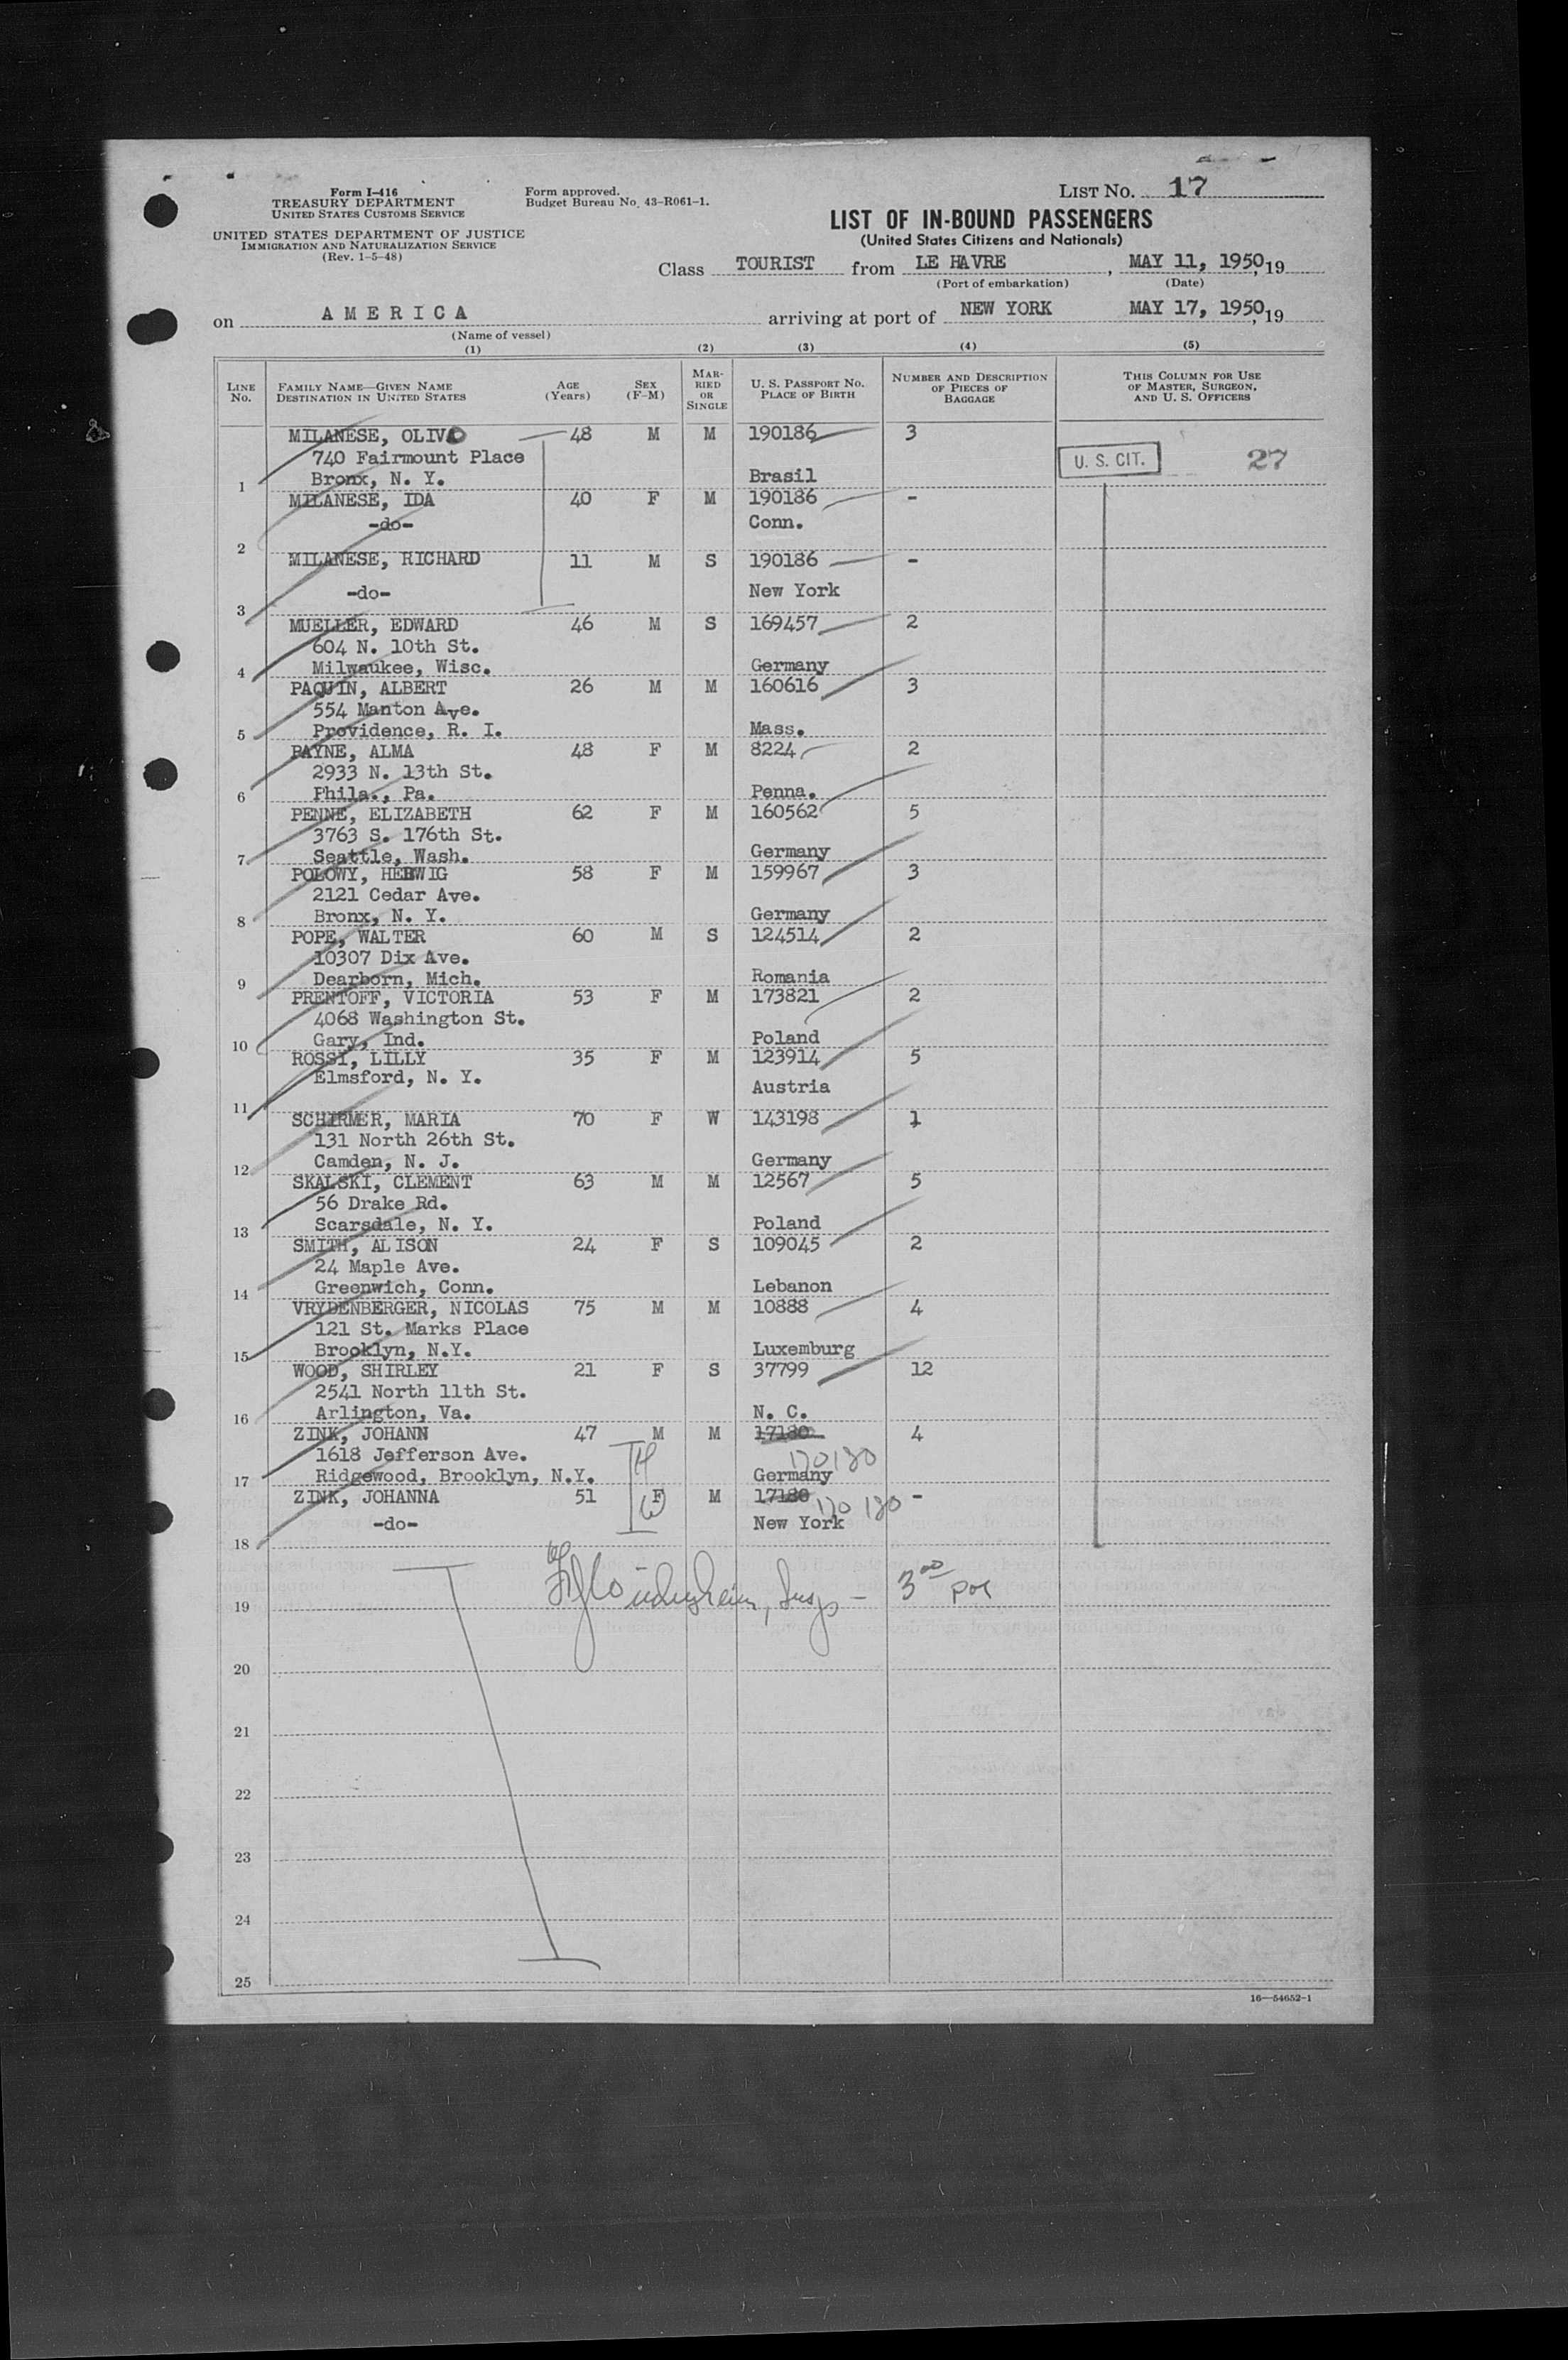 LIST NO. 17
Form I-416
TREASURY DEPARTMENT
UNITED STATES CUSTOMS SERVICE
UNITED STATES DEPARTMENT OF JUSTICE
IMMIGRATION AND NATURALIZATION SERVICE
(Rev. 1-5-48)
Form approved.
Budget Bureau No. 43-R061-1.
LIST OF IN-BOUND PASSENGERS
(United States Citizens and Nationals)
Class TOURIST from LE HAVRE, MAY 11, 1950, 19
(Port of embarkation) (Date)
on AMERICA arriving at port of NEW YORK MAY 17, 1950, 19
(Name of vessel)
(1) (2) (3) (4) (5)
LINE NO. FAMILY NAME—GIVEN NAME DESTINATION IN UNITED STATES AGE (Years) SEX (F-M) MARRIED OR SINGLE U. S. PASSPORT NO. PLACE OF BIRTH NUMBER AND DESCRIPTION OF PIECES OF BAGGAGE THIS COLUMN FOR USE OF MASTER, SURGEON, AND U. S. OFFICERS
MILANESE, OLIVO 48 M M 190186 3
740 Fairmount Place U. S. CIT. 27
1 Bronx, N. Y. Brasil
MILANESE, IDA 40 F M 190186 -
-do- Conn.
2
MILANESE, RICHARD 11 M S 190186 -
-do- New York
3
MUELLER, EDWARD 46 M S 169457 2
604 N. 10th St.
4 Milwaukee, Wisc. Germany
PAQUIN, ALBERT 26 M M 160616 3
554 Manton Ave.
5 Providence, R. I. Mass.
PAYNE, ALMA 48 F M 8224 2
2933 N. 13th St.
6 Phila., Pa. Penna.
PENNE, ELIZABETH 62 F M 160562 5
3763 S. 176th St.
7 Seattle, Wash. Germany
POLOWY, HEDWIG 58 F M 159967 3
2121 Cedar Ave.
8 Bronx, N. Y. Germany
POPE, WALTER 60 M S 124514 2
10307 Dix Ave.
9 Dearborn, Mich. Romania
PRENTOFF, VICTORIA 53 F M 173821 2
4068 Washington St.
10 Gary, Ind. Poland
ROSSI, LILLY 35 F M 123914 5
Elmsford, N. Y. Austria
11
SCHIRMER, MARIA 70 F W 143198 1
131 North 26th St.
12 Camden, N. J. Germany
SKALSKI, CLEMENT 63 M M 12567 5
56 Drake Rd.
13 Scarsdale, N. Y. Poland
SMITH, ALISON 24 F S 109045 2
24 Maple Ave.
14 Greenwich, Conn. Lebanon
VRYDENBERGER, NICOLAS 75 M M 10888 4
121 St. Marks Place
15 Brooklyn, N.Y. Luxemburg
WOOD, SHIRLEY 21 F S 37799 12
2541 North 11th St.
16 Arlington, Va. N. C.
ZINK, JOHANN 47 M M 17180 4
1618 Jefferson Ave. H 170180
17 Ridgewood, Brooklyn, N.Y. Germany
ZINK, JOHANNA 51 F M 17180 170180 -
-do- W New York
18
19 Insp - 3 00
20
21
22
23
24
25
16—54652-1